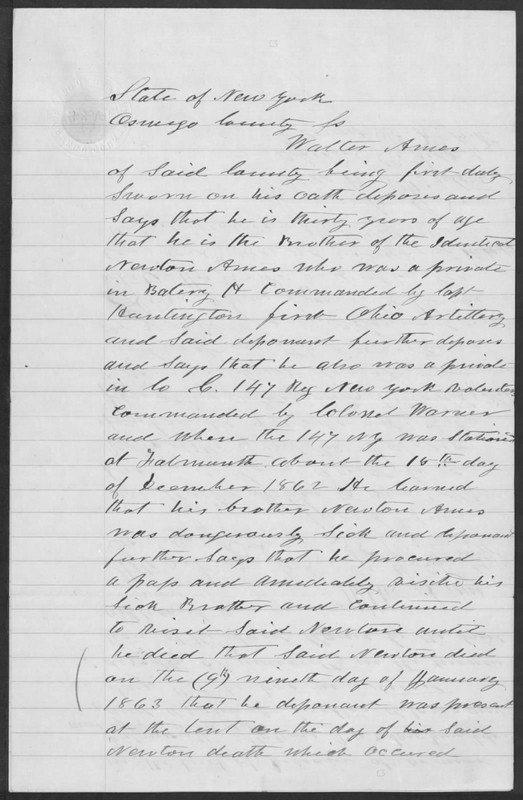 State of New York
Oswego County Ss
Walter Ames
of Said County being first duly
Sworn on his oath deposes and
Says that he is thirty years of age
that he is the Brother of the Identical
Newton Ames who was a private
in Batery H Commanded by Capt
Huntington first Ohio Artillery
and Said deponant further deposes
and Says that he also was a private
in Co C. 147 Reg New York Volunteer
Commanded by Colonel Warner
and when the 147 NY was Stationed
at Falmouth about the 15th day
of December 1862 He learned
that his brother Newton Ames
was dangerously Sick and deponant
further Says that he procured
a pass and amediately visite his
Sick Brother and Continued
to visit Said Newton until
he died that Said Newton died
on the (9th) nineth day of January
1863 that he deponant was present
at the tent on the day of his Said
Newton death which occured